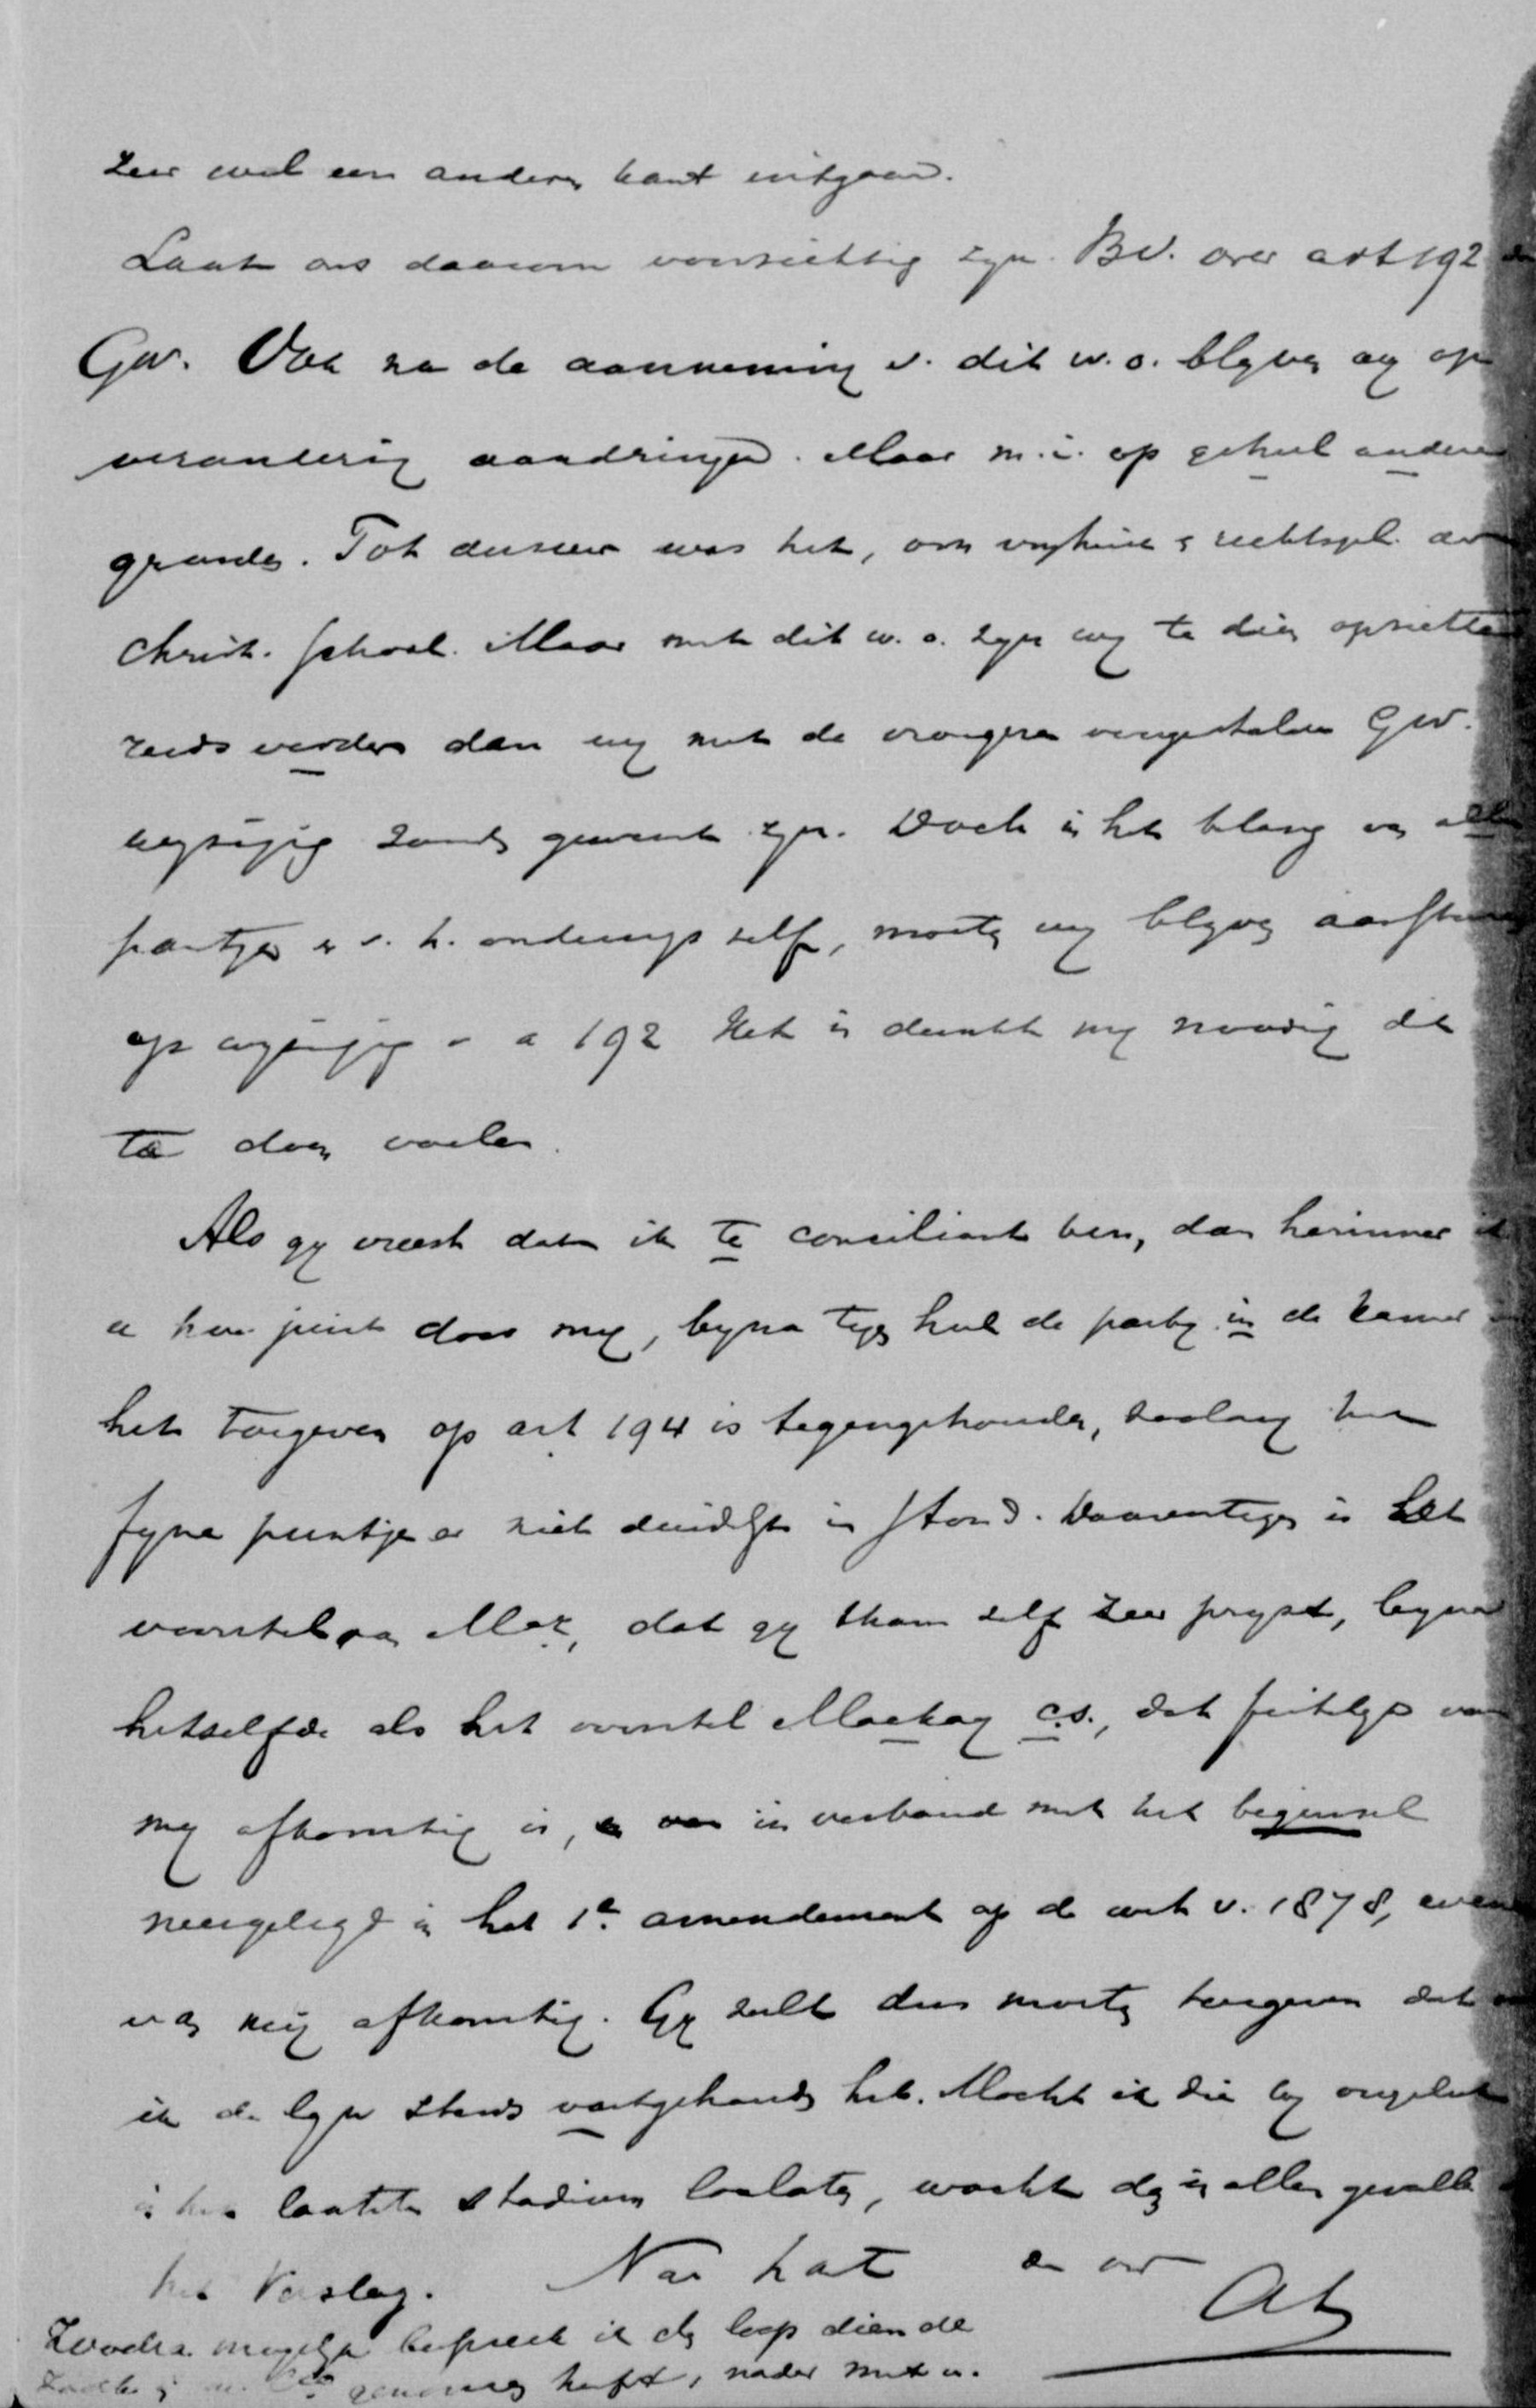 zeer wel een anderen kant uitgaan.
Laat ons daarom voorzichtig zyn. Bv. over art 192 der
Gw. Ook na de aanneming v. dit w.o. blyven wy op
verandering aandringen. Maar m.i. op geheel andere
gronden. Tot dusver was het, om vryheid & rechtsgel. der
Christ. School. Maar met dit w.o. zyn wy te dien opzichte
reeds verder dan wy met de vroegere voorgestelde Gw.
wyziging zouden geweest zyn. Doch in het belang van alle
partyen en v. h. onderwys zelf, moeten wy blyven aansturen
op wyziging v a 192 Het is dunkt my noodig dit
te doen voelen.
Als gy vreest dat ik te conciliant ben, dan herinner ik
u hoe juist door my, byna tegen heel de party in de kamer
het toegeven op art 194 is tegengehouden, zoolang het
fyne puntje er niet duidelyk in stond. Daarentegen is het
voorstel van Mac, dat gy thans zelf zeer pryst, byna
hetzelfde als het voorstel Mackay c.s., dat feitelyk van
my afkomstig is, in verband met het beginsel
neergelegd in het 1e amendement op de wet v. 1878, even
van my afkomstig. Gy zult dus moeten toegeven dat
ik de lyn steeds vastgehouden heb. Mocht ik die by ongeluk
in het laatste stadium loslaten, wacht dan in allen gevalle
het Verslag. den uw
Zoodra mogelyk bespreek ik de loop die de
genomen heeft, nader met u.